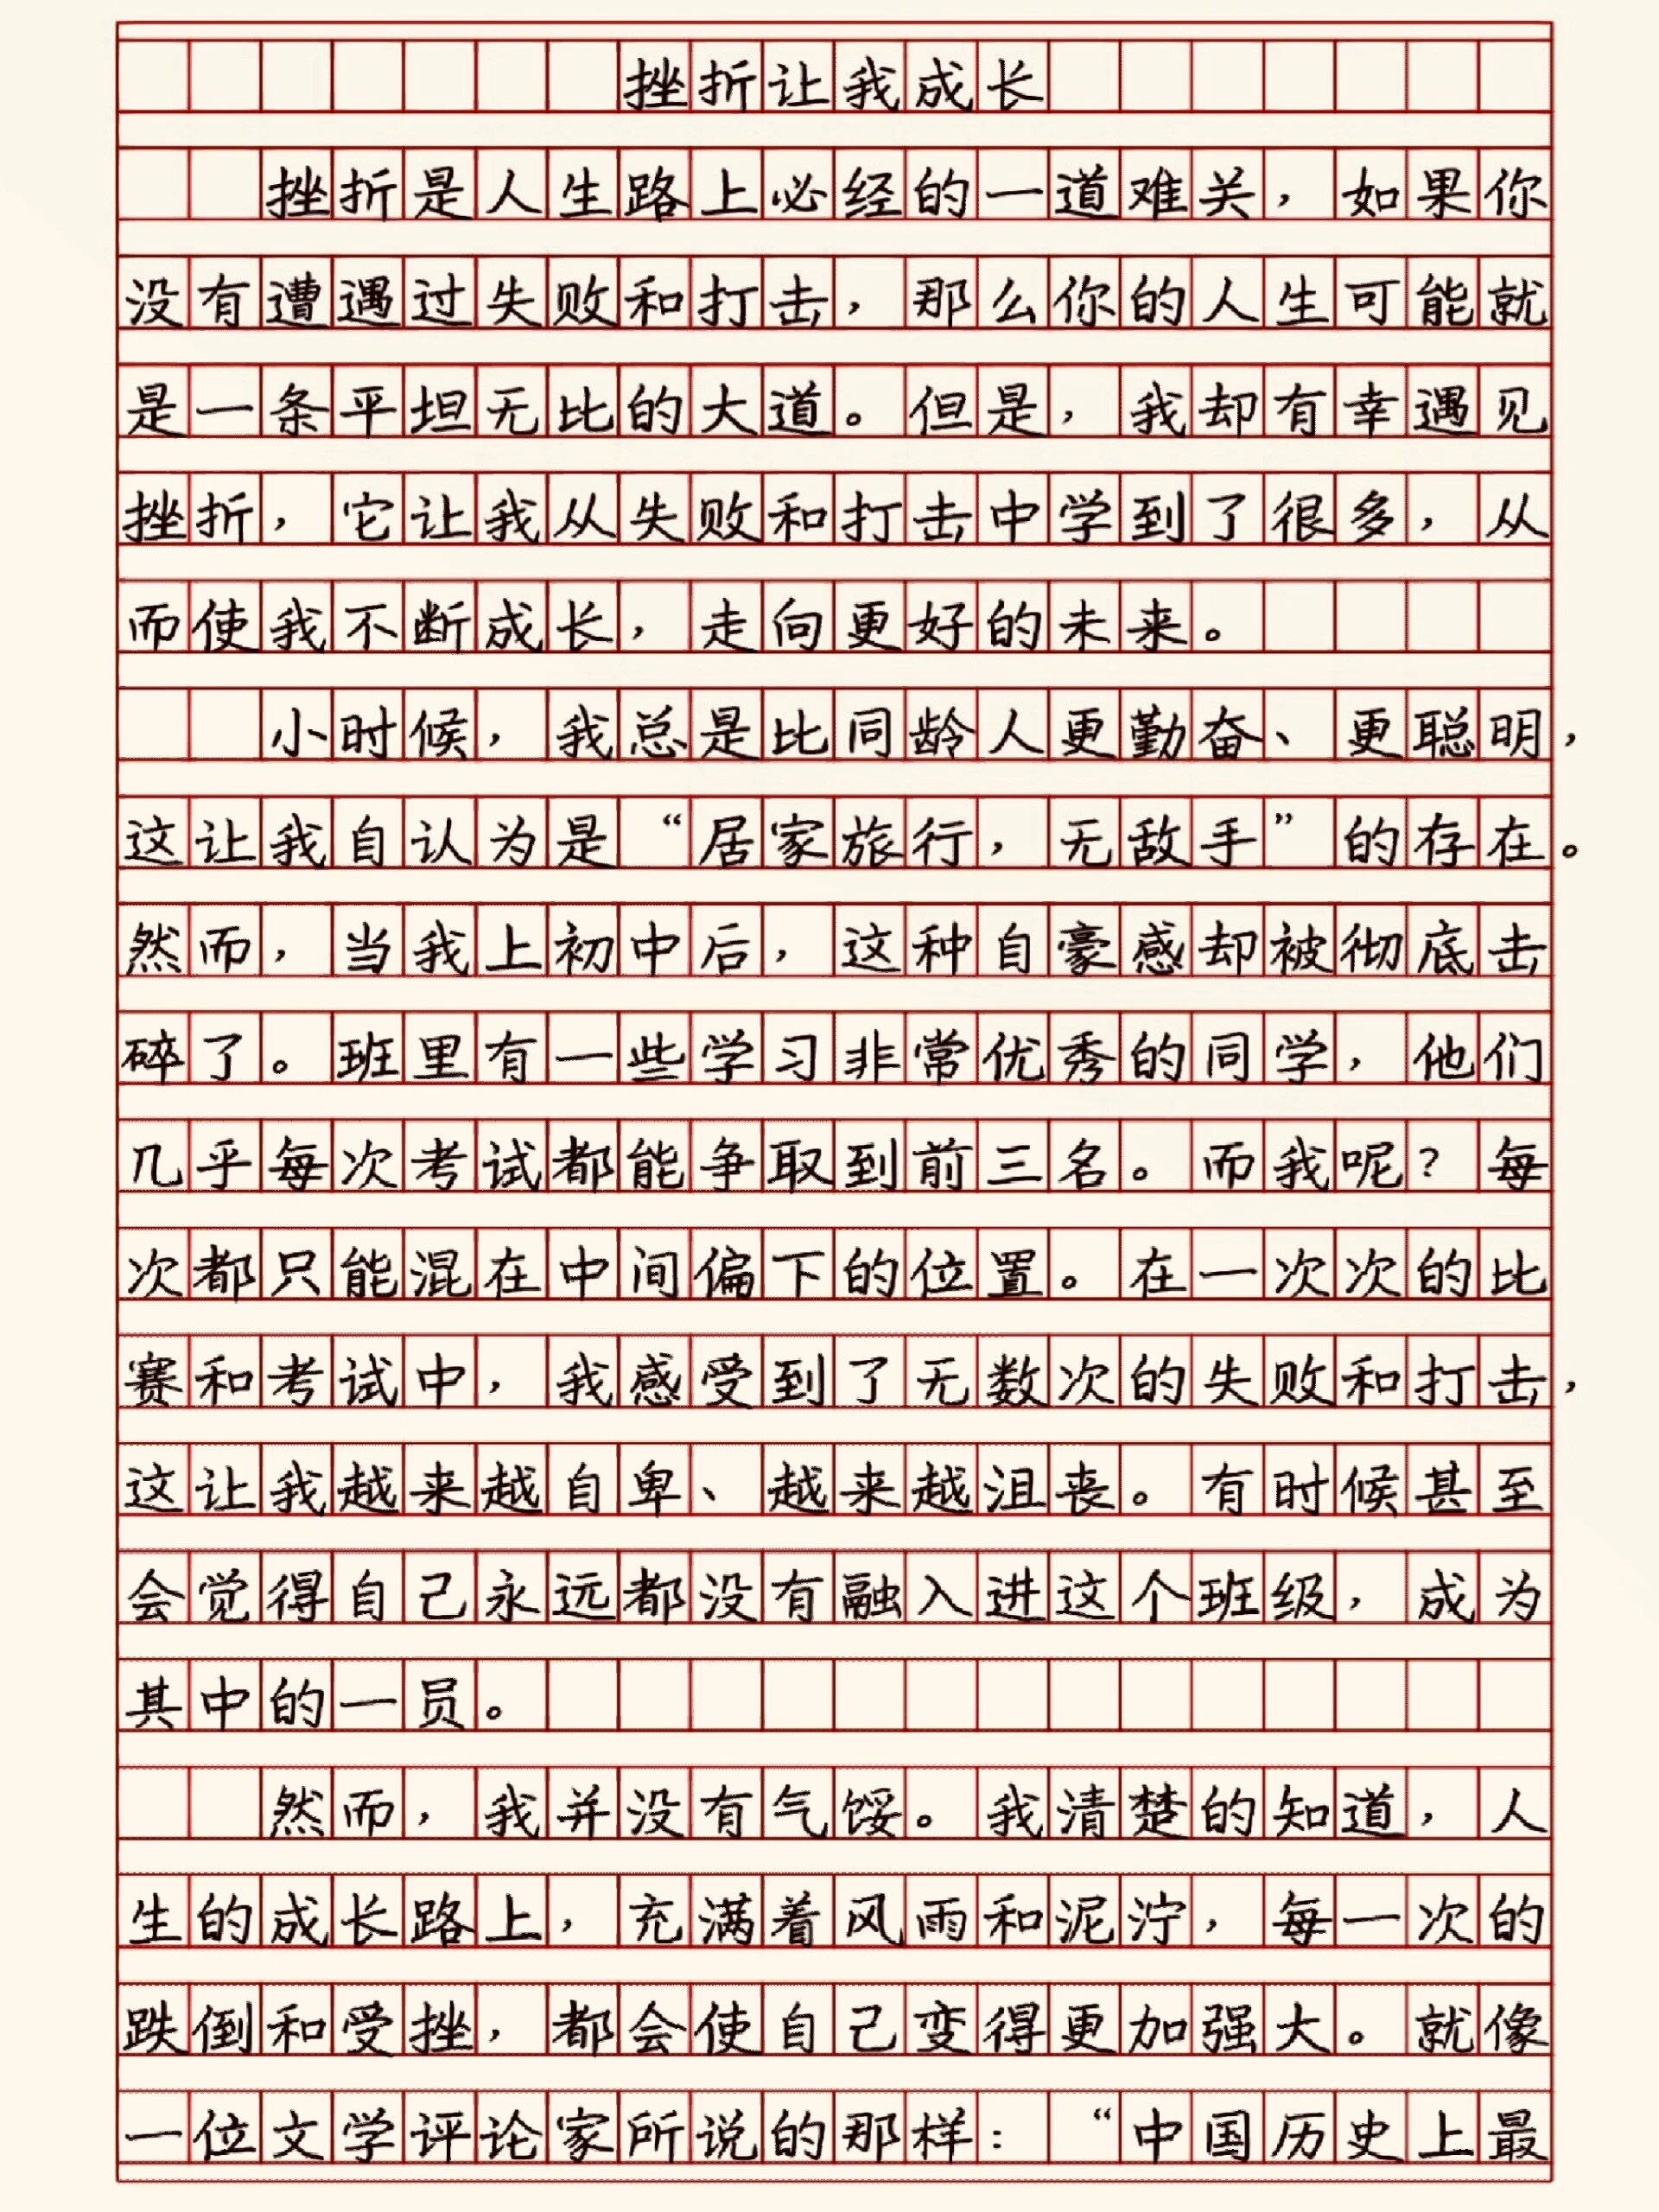 挫折让我成长
挫折是人生路上必经的一道难关，如果你
没有遭遇过失败和打击，那么你的人生可能就
是一条平坦无比的大道。但是，我却有幸遇见
挫折，它让我从失败和打击中学到了很多，从
而使我不断成长，走向更好的未来。
小时候，我总是比同龄人更勤奋、更聪明，
这让我自认为是“居家旅行，无敌手”的存在。
然而，当我上初中后，这种自豪感却被彻底击
碎了。班里有一些学习非常优秀的同学，他们
几乎每次考试都能争取到前三名。而我呢？每
次都只能混在中间偏下的位置。在一次次的比
赛和考试中，我感受到了无数次的失败和打击，
这让我越来越自卑、越来越沮丧。有时候甚至
会觉得自己永远都没有融入进这个班级，成为
其中的一员。
然而，我并没有气馁。我清楚的知道，人
生的成长路上，充满着风雨和泥泞，每一次的
跌倒和受挫，都会使自己变得更加强大。就像
一位文学评论家所说的那样：“中国历史上最